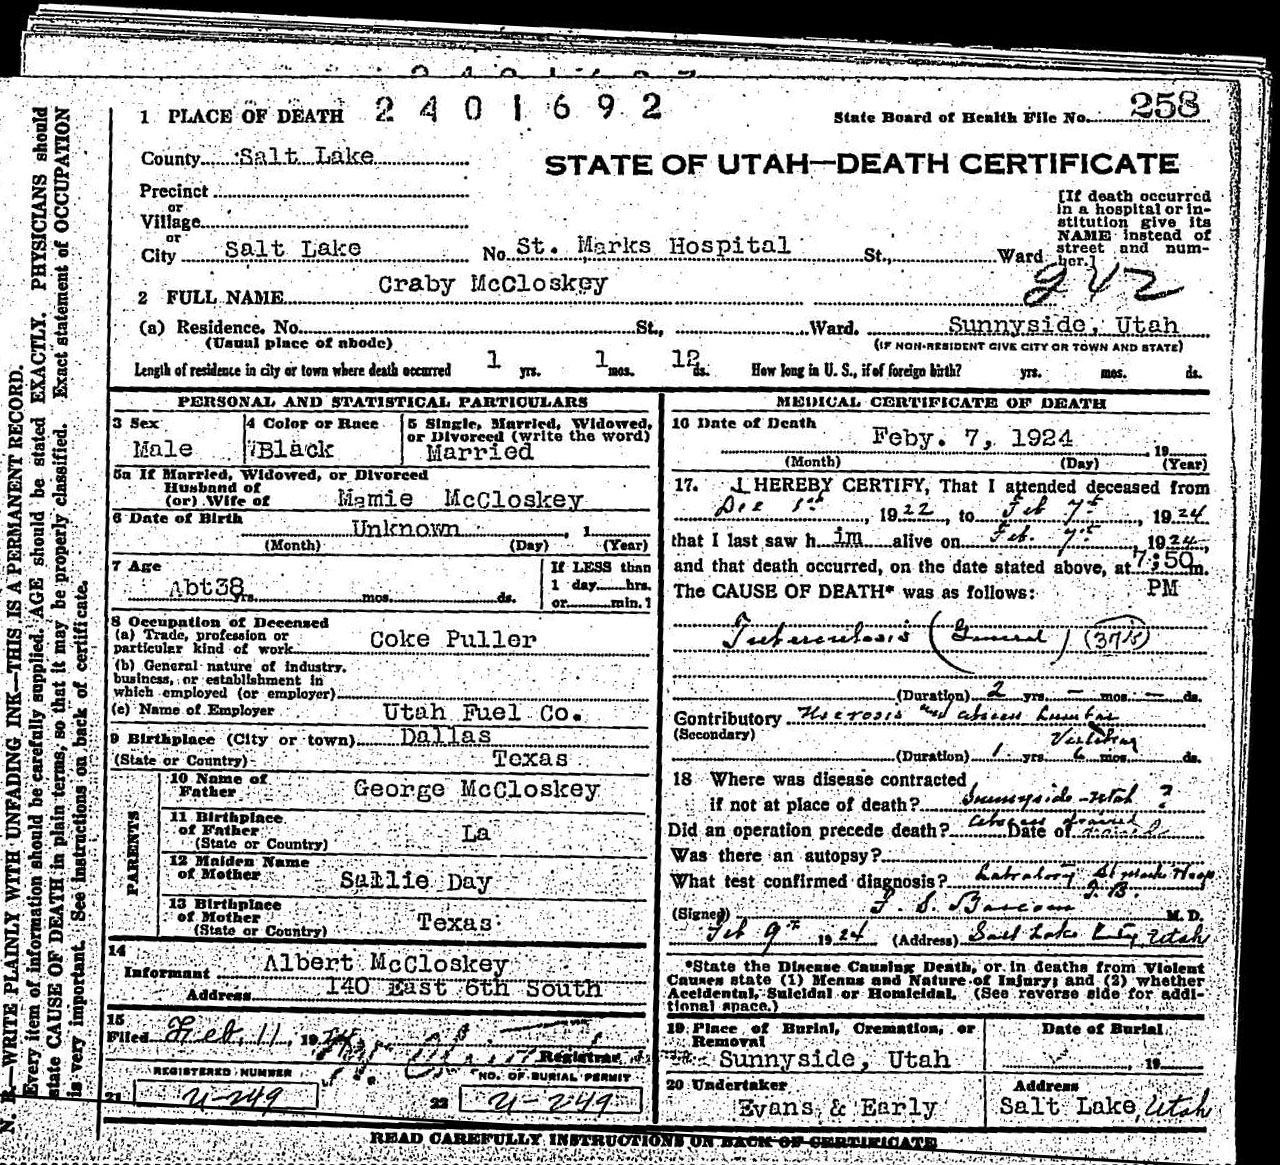 1 PLACE OF DEATH 2401692
State Board of Health File No. 258
County Salt Lake
STATE OF UTAH—DEATH CERTIFICATE
Precinct
or
Village
or
City Salt Lake No. St. Marks Hospital St., Ward
[If death occurred in a hospital or institution give its NAME instead of street and number.]
242
2 FULL NAME Craby McCloskey
(a) Residence. No. St., Ward. Sunnyside, Utah
(Usual place of abode) (IF NON-RESIDENT GIVE CITY OR TOWN AND STATE)
Length of residence in city or town where death occurred 1 yrs. 1 mos. 12 ds. How long in U. S., if of foreign birth? yrs. mos. ds.
PERSONAL AND STATISTICAL PARTICULARS
3 Sex
Male
4 Color or Race
Black
5 Single, Married, Widowed, or Divorced (write the word)
Married
5a If Married, Widowed, or Divorced
Husband of
(or) Wife of Mamie McCloskey
6 Date of Birth Unknown, 1
(Month) (Day) (Year)
7 Age
Abt38 yrs. mos. ds.
If LESS than
1 day hrs.
or min.?
8 Occupation of Deceased
(a) Trade, profession or
particular kind of work Coke Puller
(b) General nature of industry,
business, or establishment in
which employed (or employer)
(c) Name of Employer Utah Fuel Co.
9 Birthplace (City or town) Dallas
(State or Country) Texas
PARENTS
10 Name of
Father George McCloskey
11 Birthplace
of Father La
(State or Country)
12 Maiden Name
of Mother Sallie Day
13 Birthplace
of Mother Texas
(State or Country)
14
Informant Albert McCloskey
Address 140 East 6th South
15
Filed Feb. 11, 19
Registrar
REGISTERED NUMBER
21 U-249
NO. OF BURIAL PERMIT
22 U-249
MEDICAL CERTIFICATE OF DEATH
16 Date of Death
Feby. 7, 1924, 19
(Month) (Day) (Year)
17. I HEREBY CERTIFY, That I attended deceased from
Dec 1st, 1922, to Feb 7th, 1924
that I last saw h im alive on Feb. 7th 1924,
and that death occurred, on the date stated above, at 7:50 m.
PM
The CAUSE OF DEATH* was as follows:
Tuberculosis (General)
(Duration) 2 yrs. — mos. — ds.
Contributory Necrosis and abscess Lumbar
(Secondary) Vertebrae
(Duration) 1 yrs. 6 mos. ds.
18 Where was disease contracted
if not at place of death? Sunnyside-Utah ?
Did an operation precede death? Abscess drained Date of
Was there an autopsy?
What test confirmed diagnosis? Labratory St Marks Hosp
T. B.
(Signed) F. S. Bascom M. D.
Feb 9th 1924 (Address) Salt Lake City Utah
*State the Disease Causing Death, or in deaths from Violent
Causes state (1) Means and Nature of Injury; and (2) whether
Accidental, Suicidal or Homicidal. (See reverse side for additional space.)
19 Place of Burial, Cremation, or
Removal
Sunnyside, Utah
Date of Burial
19
20 Undertaker
Evans & Early
Address
Salt Lake, Utah
READ CAREFULLY INSTRUCTIONS ON BACK OF CERTIFICATE
N. B.—WRITE PLAINLY WITH UNFADING INK—THIS IS A PERMANENT RECORD.
Every item of information should be carefully supplied. AGE should be stated EXACTLY. PHYSICIANS should
state CAUSE OF DEATH in plain terms, so that it may be properly classified. Exact statement of OCCUPATION
is very important. See instructions on back of certificate.